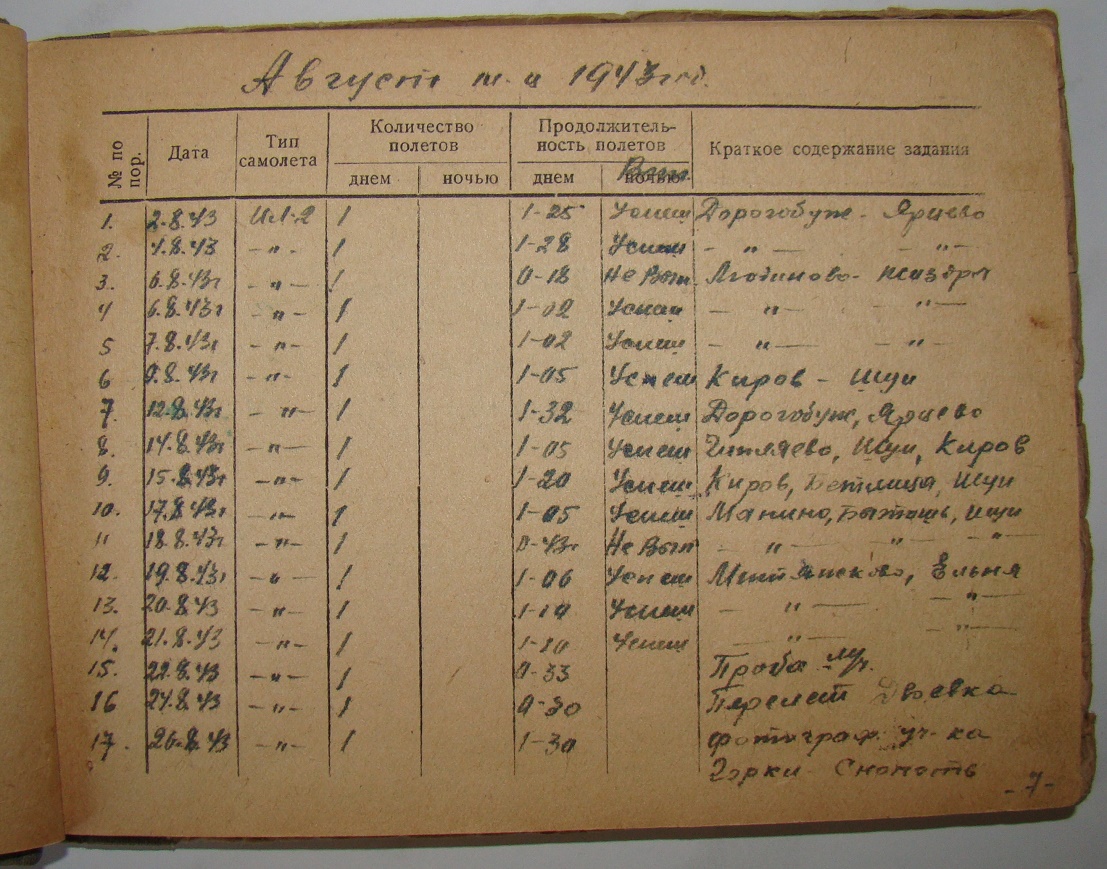 Август м-ц 1943 год.
№ по пор. Дата Тип самолета Количество полетов Продолжительность полетов Краткое содержание задания
днем ночью днем ночью Вып.
1. 2.8.43 ИЛ-2 1 1-25 Успеш Дорогобуж - Ярцево
2. 4.8.43 -"- 1 1-28 Успеш - " - - " -
3. 6.8.43г -"- 1 0-18 Не Вып. Людиново - Жиздра
4 6.8.43г -"- 1 1-02 Успеш - " - " -
5 7.8.43г -"- 1 1-02 Успеш - " - - " -
6 9.8.43г -"- 1 1-05 Успеш Киров - Шуи
7. 12.8.43г -"- 1 1-32 Успеш Дорогобуж, Ярцево
8. 14.8.43г -"- 1 1-05 Успеш Чипляево, Шуи, Киров
9. 15.8.43г -"- 1 1-20 Успеш Киров, Бетлица, Шуи
10. 17.8.43г -"- 1 1-05 Успеш Манино, Шуи
11 18.8.43г -"- 1 0-43г Не Вып - " - - " - - " -
12. 19.8.43г -"- 1 1-06 Успеш Ельня
13. 20.8.43 -"- 1 1-10 Успеш - " - - " -
14. 21.8.43 -"- 1 1-10 Успеш - " - - " -
15. 22.8.43 -"- 1 0-33 Проба
16 24.8.43 -"- 1 0-30 Перелет Двоевка
17. 26.8.43 -"- 1 1-30 фотограф. уч-ка
Горки - Снопоть
-7-